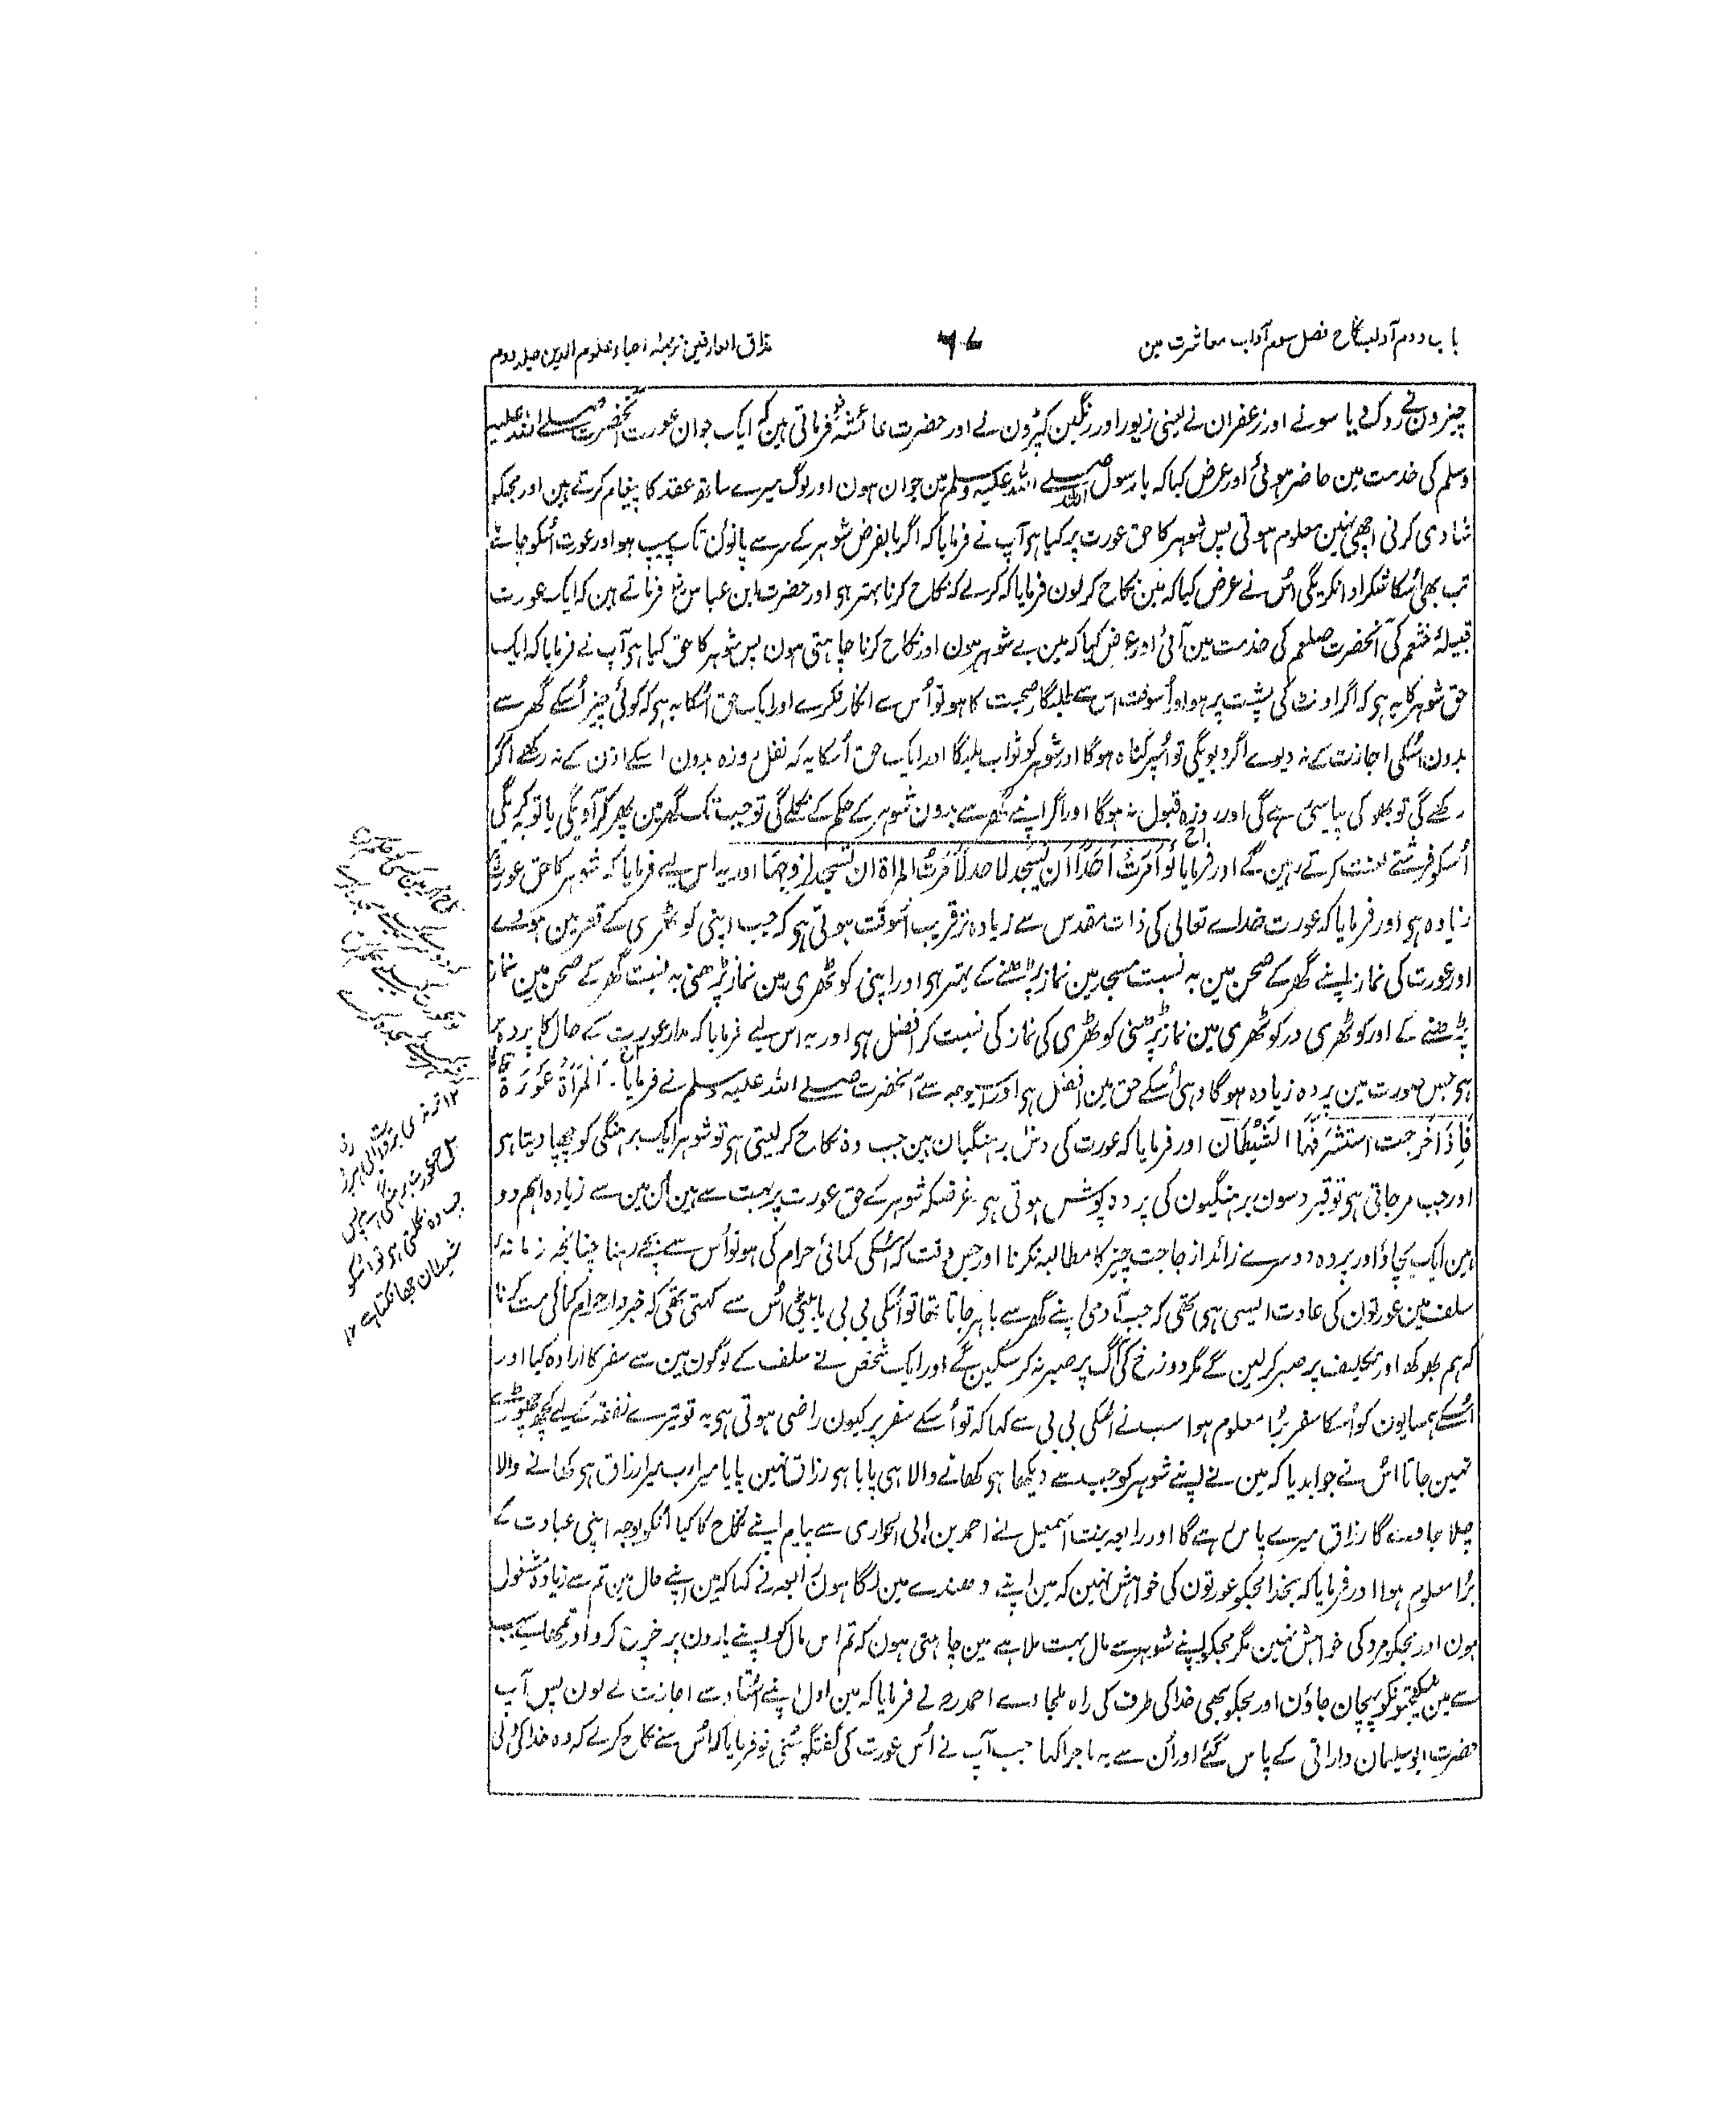 باب دوم آداب نکاح فصل سوم آداب معاشرت مین
۶۷
مذاق العارفین ترجمۂ احیاء علوم الدین جلد دوم
چیزون نے روک لے یا سونے اور زعفران نے یعنی زیور اور رنگین کپڑون نے اور حضرت عائشہؓ فرماتی ہین کہ ایک جوان عورت آنحضرت صلے اللہ علیہ
وسلم کی خدمت مین حاضر ہوئی اور عرض کیا کہ یا رسول اللہ صلے اللہ علیہ وسلم مین جوان ہون اور لوگ میرے ساتھ عقد کا پیغام کرتے ہین اور مجکو
شادی کرنی اچھی نہین معلوم ہوتی پس شوہر کا حق عورت پر کیا ہی آپ نے فرمایا کہ اگر بالفرض شوہر کے سر سے پانوُن تک پیپ ہو اور عورت اُسکو چاٹے
تب بھی اُسکا شکر ادا نکریگی اُس نے عرض کیا کہ مین نکاح کر لون فرمایا کہ کر لے کہ نکاح کرنا بہتر ہی اور حضرت ابن عباسؓ فرماتے ہین کہ ایک عورت
قبیلۂ خثعم کی آنحضرت صلعم کی خدمت مین آئی اور عرض کیا کہ مین بے شوہر ہون اور نکاح کرنا چاہتی ہون پس شوہر کا حق کیا ہی آپ نے فرمایا کہ ایک
حق شوہر کا یہ ہی کہ اگر اونٹ کی پشت پر ہو اور اُسوقت اس سے طلبگار صحبت کا ہو تو اُس سے انکار نکرے اور ایک حق اُسکا یہ ہی کہ کوئی چیز اُسکے گھر سے
بدون اُسکی اجازت کے نہ دیوے اگر دیویگی تو اُسپر گناہ ہوگا اور شوہر کو ثواب ملیگا اور ایک حق اُسکا یہ کہ نفل روزہ بدون اسکے اذن کے نہ رکھے اگر
رکھے گی تو بھوکی پیاسی رہے گی اور روزہ قبول نہ ہوگا اور اگر اپنے گھر سے بدون شوہر کے حکم کے نکلے گی تو جب تک گھر مین پھر کر آویگی یا توبہ کریگی
اُسکو فرشتے لعنت کرتے رہین گے اور فرمایا لَوْ اَمَرْتُ اَحَدًا اَنْ یَّسْجُدَ لِاَحَدٍ لَاَمَرْتُ المراۃ ان تسجد لزوجہا اور یہ اس لیے فرمایا کہ شوہر کا حق عورت پر
زیادہ ہی اور فرمایا کہ عورت خداے تعالی کی ذات مقدس سے زیادہ تر قریب اُسوقت ہوتی ہی کہ جب اپنی کوٹھری کے قعر مین ہووے
اور عورت کی نماز اپنے گھر کے صحن مین بہ نسبت مسجد مین نماز پڑھنے کے بہتر ہی اور اپنی کوٹھری مین نماز پڑھنی بہ نسبت گھر کے صحن مین نماز
پڑھنے کے اور کوٹھری در کوٹھری مین نماز پڑھنی کوٹھری کی نماز کی نسبت کر افضل ہی اور یہ اس لیے فرمایا کہ مدار عورت کے حال کا پردہ پر
ہی جس صورت مین پردہ زیادہ ہوگا وہی اُسکے حق مین افضل ہی اور اسیوجہ سے آنحضرت صلے اللہ علیہ وسلم نے فرمایا۔ اَلْمَرْأَۃُ عَوْرَۃٌ
فَاِذَا خرجت استشرفہا الشَّیْطَان اور فرمایا کہ عورت کی دس برہنگیان ہین جب وہ نکاح کر لیتی ہی تو شوہر ایک برہنگی کو چھپا دیتا ہی
اور جب مر جاتی ہی تو قبر دسون برہنگیون کی پردہ پوش ہوتی ہی۔ غرضکہ شوہر کے حق عورت پر بہت سے ہین اُن مین سے زیادہ اہم دو
ہین ایک بچاؤ اور پردہ دوسرے زائد از حاجت چیز کا مطالبہ نکرنا اور جس وقت کہ اُسکی کمائی حرام کی ہو تو اُس سے بچے رہنا چنانچہ زمانۂ
سلف مین عورتون کی عادت ایسی ہی تھی کہ جب آدمی اپنے گھر سے باہر جاتا تھا تو اُسکی بی بی یا بیٹی اُس سے کہتی تھی کہ خبردار حرام کمائی مت کرنا
کہ ہم بھوکھ اور تکلیف پر صبر کر لین گے مگر دوزخ کی آگ پر صبر نہ کر سکین گے اور ایک شخص نے سلف کے لوگون مین سے سفر کا ارادہ کیا اور
اُسکے ہمسایون کو اُسکا سفر بُرا معلوم ہوا سب نے اُسکی بی بی سے کہا کہ تو اُسکے سفر پر کیون راضی ہوتی ہی یہ تو تیرے نفقہ کے لیے کچھ چھوڑے
نہین جاتا اُس نے جواب دیا کہ مین نے اپنے شوہر کو جب سے دیکھا ہی کھانے والا ہی پایا ہی رزاق نہین پایا میرا رب میرا رزاق ہی کھانے والا
چلا جاوے گا رزاق میرے پاس رہے گا اور رابعہ بنت اسمعیل نے احمد بن ابی الحواری سے پیام اپنے نکاح کا کیا اُنکو بوجہ اپنی عبادت کے
بُرا معلوم ہوا اور فرمایا کہ بخدا مجکو عورتون کی خواہش نہین کہ مین اپنے دھندے مین لگا ہون رابعہ نے کہا کہ مین اپنے حال مین تم سے زیادہ مشغول
ہون اور مجکو مرد کی خواہش نہین مگر مجکو اپنے شوہر سے مال بہت ملا ہے مین چاہتی ہون کہ تم اس مال کو اپنے یارون پر خرچ کرو اور تمھارے سبب
سے مین نیکبختونکو پہچان جاؤن اور مجکو بھی خدا کی طرف کی راہ ملجاوے احمد رح نے فرمایا کہ مین اول اپنے اُستاد سے اجازت لے لون پس آپ
حضرت ابو سلیمان دارانی کے پاس گئے اور اُن سے یہ ماجرا کہا جب آپ نے اُس عورت کی گفتگو سُنی تو فرمایا کہ اُس سے نکاح کر لے کہ وہ خدا کی ولی
عورت برہنگی ہے پس
جب وہ نکلتی ہی تو اُسکو
شیطان جھانکتا ہے ۱۲